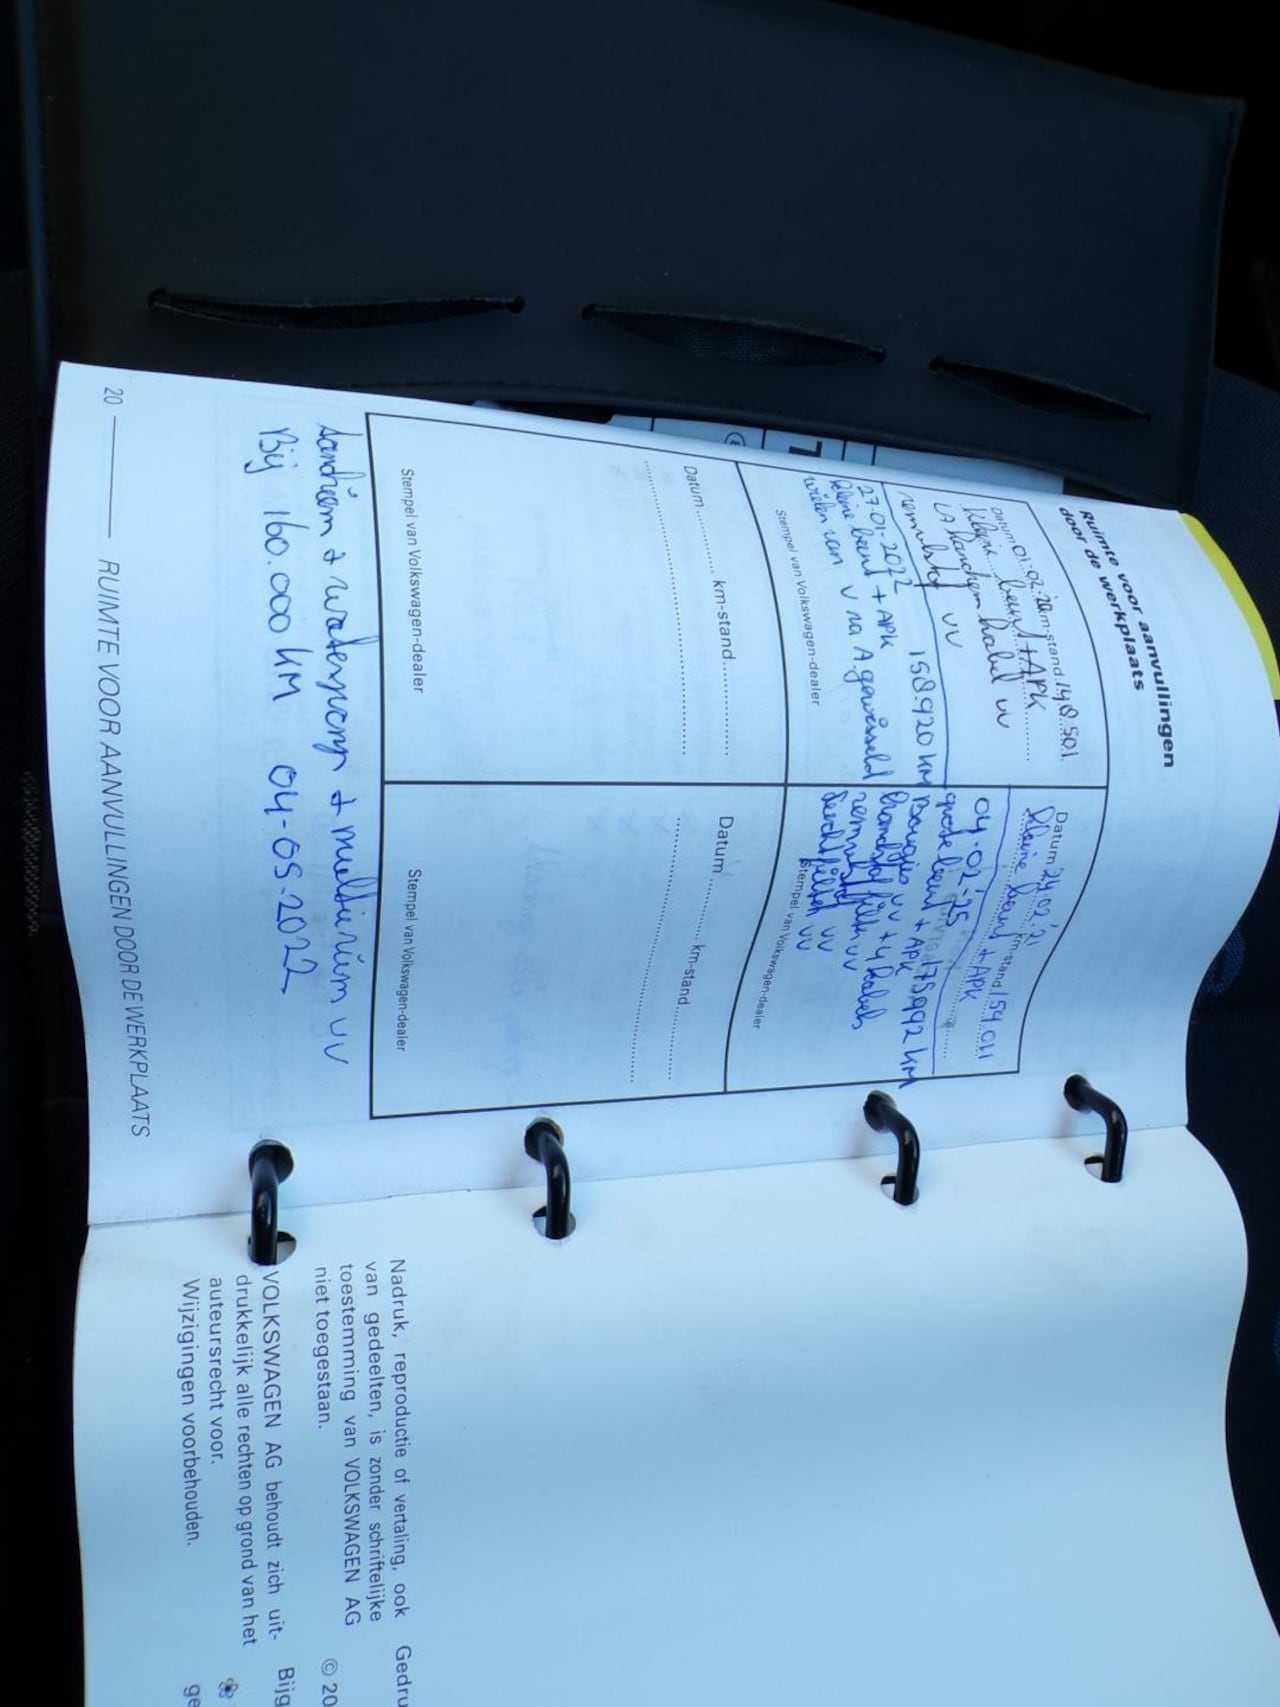 Ruimte voor aanvullingen
door de werkplaats
Datum 01.02.20 km-stand 148.501
kleine beurt + APK
handrem kabel vv
remvloeistof vv
27-01-2022 158920 KM
kleine beurt + APK
wielen van V na A gewisseld
Stempel van Volkswagen-dealer
Datum 24.02.'21
km-stand 154.011
kleine beurt + APK
04-02-'25
175992 KM
grote beurt + APK
Bougies vv + 4 kabels
brandstof filter vv
remvloeistof vv
luchtfilter vv
Stempel van Volkswagen-dealer
Datum ........ km-stand ............
Stempel van Volkswagen-dealer
Datum ........ km-stand ............
Stempel van Volkswagen-dealer
+ waterpomp + multiriem vv
Bij 160.000 KM 04-05-2022
20 RUIMTE VOOR AANVULLINGEN DOOR DE WERKPLAATS
Nadruk, reproductie of vertaling, ook
van gedeelten, is zonder schriftelijke
toestemming van VOLKSWAGEN AG
niet toegestaan.
VOLKSWAGEN AG behoudt zich uit-
drukkelijk alle rechten op grond van het
auteursrecht voor.
Wijzigingen voorbehouden.
Gedru
© 20
Bijg
ge